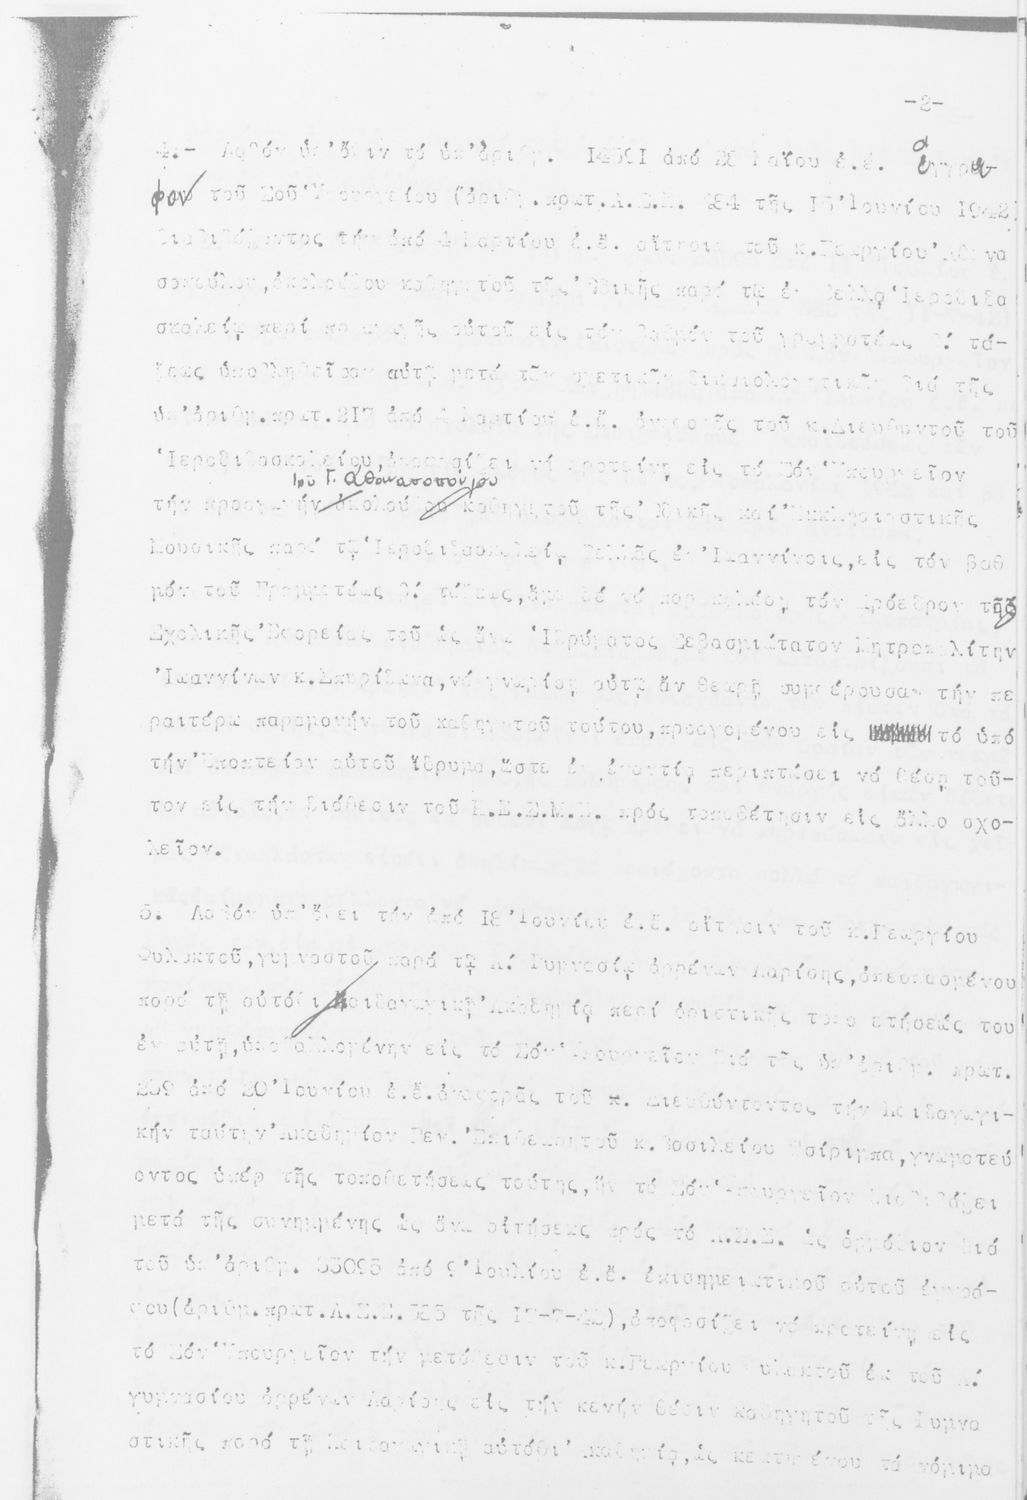 -2-
4.- Λαβόν ὑπ' ὄψιν τό ὑπ' ἀριθμ. 14391 ἀπό Μαΐου ἐ.ἔ. ἔγγρα
φον τοῦ Σοῦ Ὑπουργείου (ἀριθμ.πρωτ.Α.Σ.Ε. 484 τῆς 15 Ἰουνίου 1942)
διαβιβάζοντος τήν ἀπό 4 Μαρτίου ἐ.ἔ. αἴτησιν τοῦ κ.Γεωργίου Ἀθανα
σοπούλου, ἀκολούθου καθηγητοῦ τῆς Ὠδικῆς παρά τῷ ἐν Βελλᾷ Ἱεροδιδα
σκαλείῳ περί προαγωγῆς αὐτοῦ εἰς τόν βαθμόν τοῦ γραμματέως β' τά-
ξεως ὑποβληθεῖσαν αὐτῷ μετά τῶν σχετικῶν δικαιολογητικῶν διά τῆς
ὑπ' ἀριθμ.πρωτ.217 ἀπό 4 Μαρτίου ἐ.ἔ. ἀναφορᾶς τοῦ κ.Διευθυντοῦ τοῦ
Ἱεροδιδασκαλείου, ἀποφασίζει νά προτείνῃ εἰς τό Σόν Ὑπουργεῖον
τοῦ Γ. Ἀθανασοπούλου
τήν προαγωγήν ἀκολούθου καθηγητοῦ τῆς Ὠδικῆς καί Ἐκκλησιαστικῆς
Μουσικῆς παρά τῷ Ἱεροδιδασκαλείῳ Βελλᾶς ἐν Ἰωαννίνοις, εἰς τόν βαθ
μόν τοῦ Γραμματέως β' τάξεως, ἅμα δέ νά παρακαλέσῃ τόν Πρόεδρον τῆς
Σχολικῆς Ἐφορείας τοῦ ὡς ἄνω Ἱδρύματος Σεβασμιώτατον Μητροπολίτην
Ἰωαννίνων κ.Σπυρίδωνα, νά γνωρίσῃ αὐτῷ ἄν θεωρῇ συμφέρουσαν τήν πε
ραιτέρω παραμονήν τοῦ καθηγητοῦ τούτου, προαγομένου εἰς τό ὑπό
τήν Ἐποπτείαν αὐτοῦ ἵδρυμα, ὥστε ἐν ἐναντίᾳ περιπτώσει νά θέσῃ τοῦ-
τον εἰς τήν διάθεσιν τοῦ πρός τοποθέτησιν εἰς ἄλλο σχο-
λεῖον.
5. Λαβόν ὑπ' ὄψει τήν ἀπό 18 Ἰουνίου ἐ.ἔ. αἴτησιν τοῦ κ.Γεωργίου
Φυλακτοῦ, γυμναστοῦ παρά τῷ Α' Γυμνασίῳ ἀρρένων Λαρίσης, ἀπεσπασμένου
παρά τῇ αὐτόθι Παιδαγωγικῇ Ἀκαδημίᾳ περί ὁριστικῆς τοποθετήσεώς του
ἐν αὐτῇ, ὑποβαλλομένην εἰς τό Σόν Ὑπουργεῖον διά τῆς ὑπ' ἀριθμ. πρωτ.
259 ἀπό 20 Ἰουνίου ἐ.ἔ. ἀναφορᾶς τοῦ κ. Διευθύνοντος τήν Παιδαγωγι-
κήν ταύτην Ἀκαδημίαν Γεν. Ἐπιθεωρητοῦ κ.Βασιλείου Τσίριμπα, γνωματεύ
οντος ὑπέρ τῆς τοποθετήσεως ταύτης, ἥν τό Σόν Ὑπουργεῖον διαβιβάζει
μετά τῆς συνημμένης ὡς ἄνω αἰτήσεως πρός τό Α.Σ.Ε. ὡς ἁρμόδιον διά
τοῦ ὑπ' ἀριθμ. 53095 ἀπό 9 Ἰουλίου ἐ.ἔ. ἐπισημειωτικοῦ αὐτοῦ ἐγγρά-
φου (ἀριθμ.πρωτ.Α.Σ.Ε. τῆς ), ἀποφασίζει νά προτείνῃ εἰς
τό Σόν Ὑπουργεῖον τήν μετάθεσιν τοῦ κ.Γεωργίου Φυλακτοῦ ἐκ τοῦ Α'
γυμνασίου ἀρρένων Λαρίσης εἰς τήν κενήν θέσιν καθηγητοῦ τῆς Γυμνα
στικῆς παρά τῇ Παιδαγωγικῇ αὐτόθι Ἀκαδημίᾳ, ὡς κεκτημένου τά νόμιμα